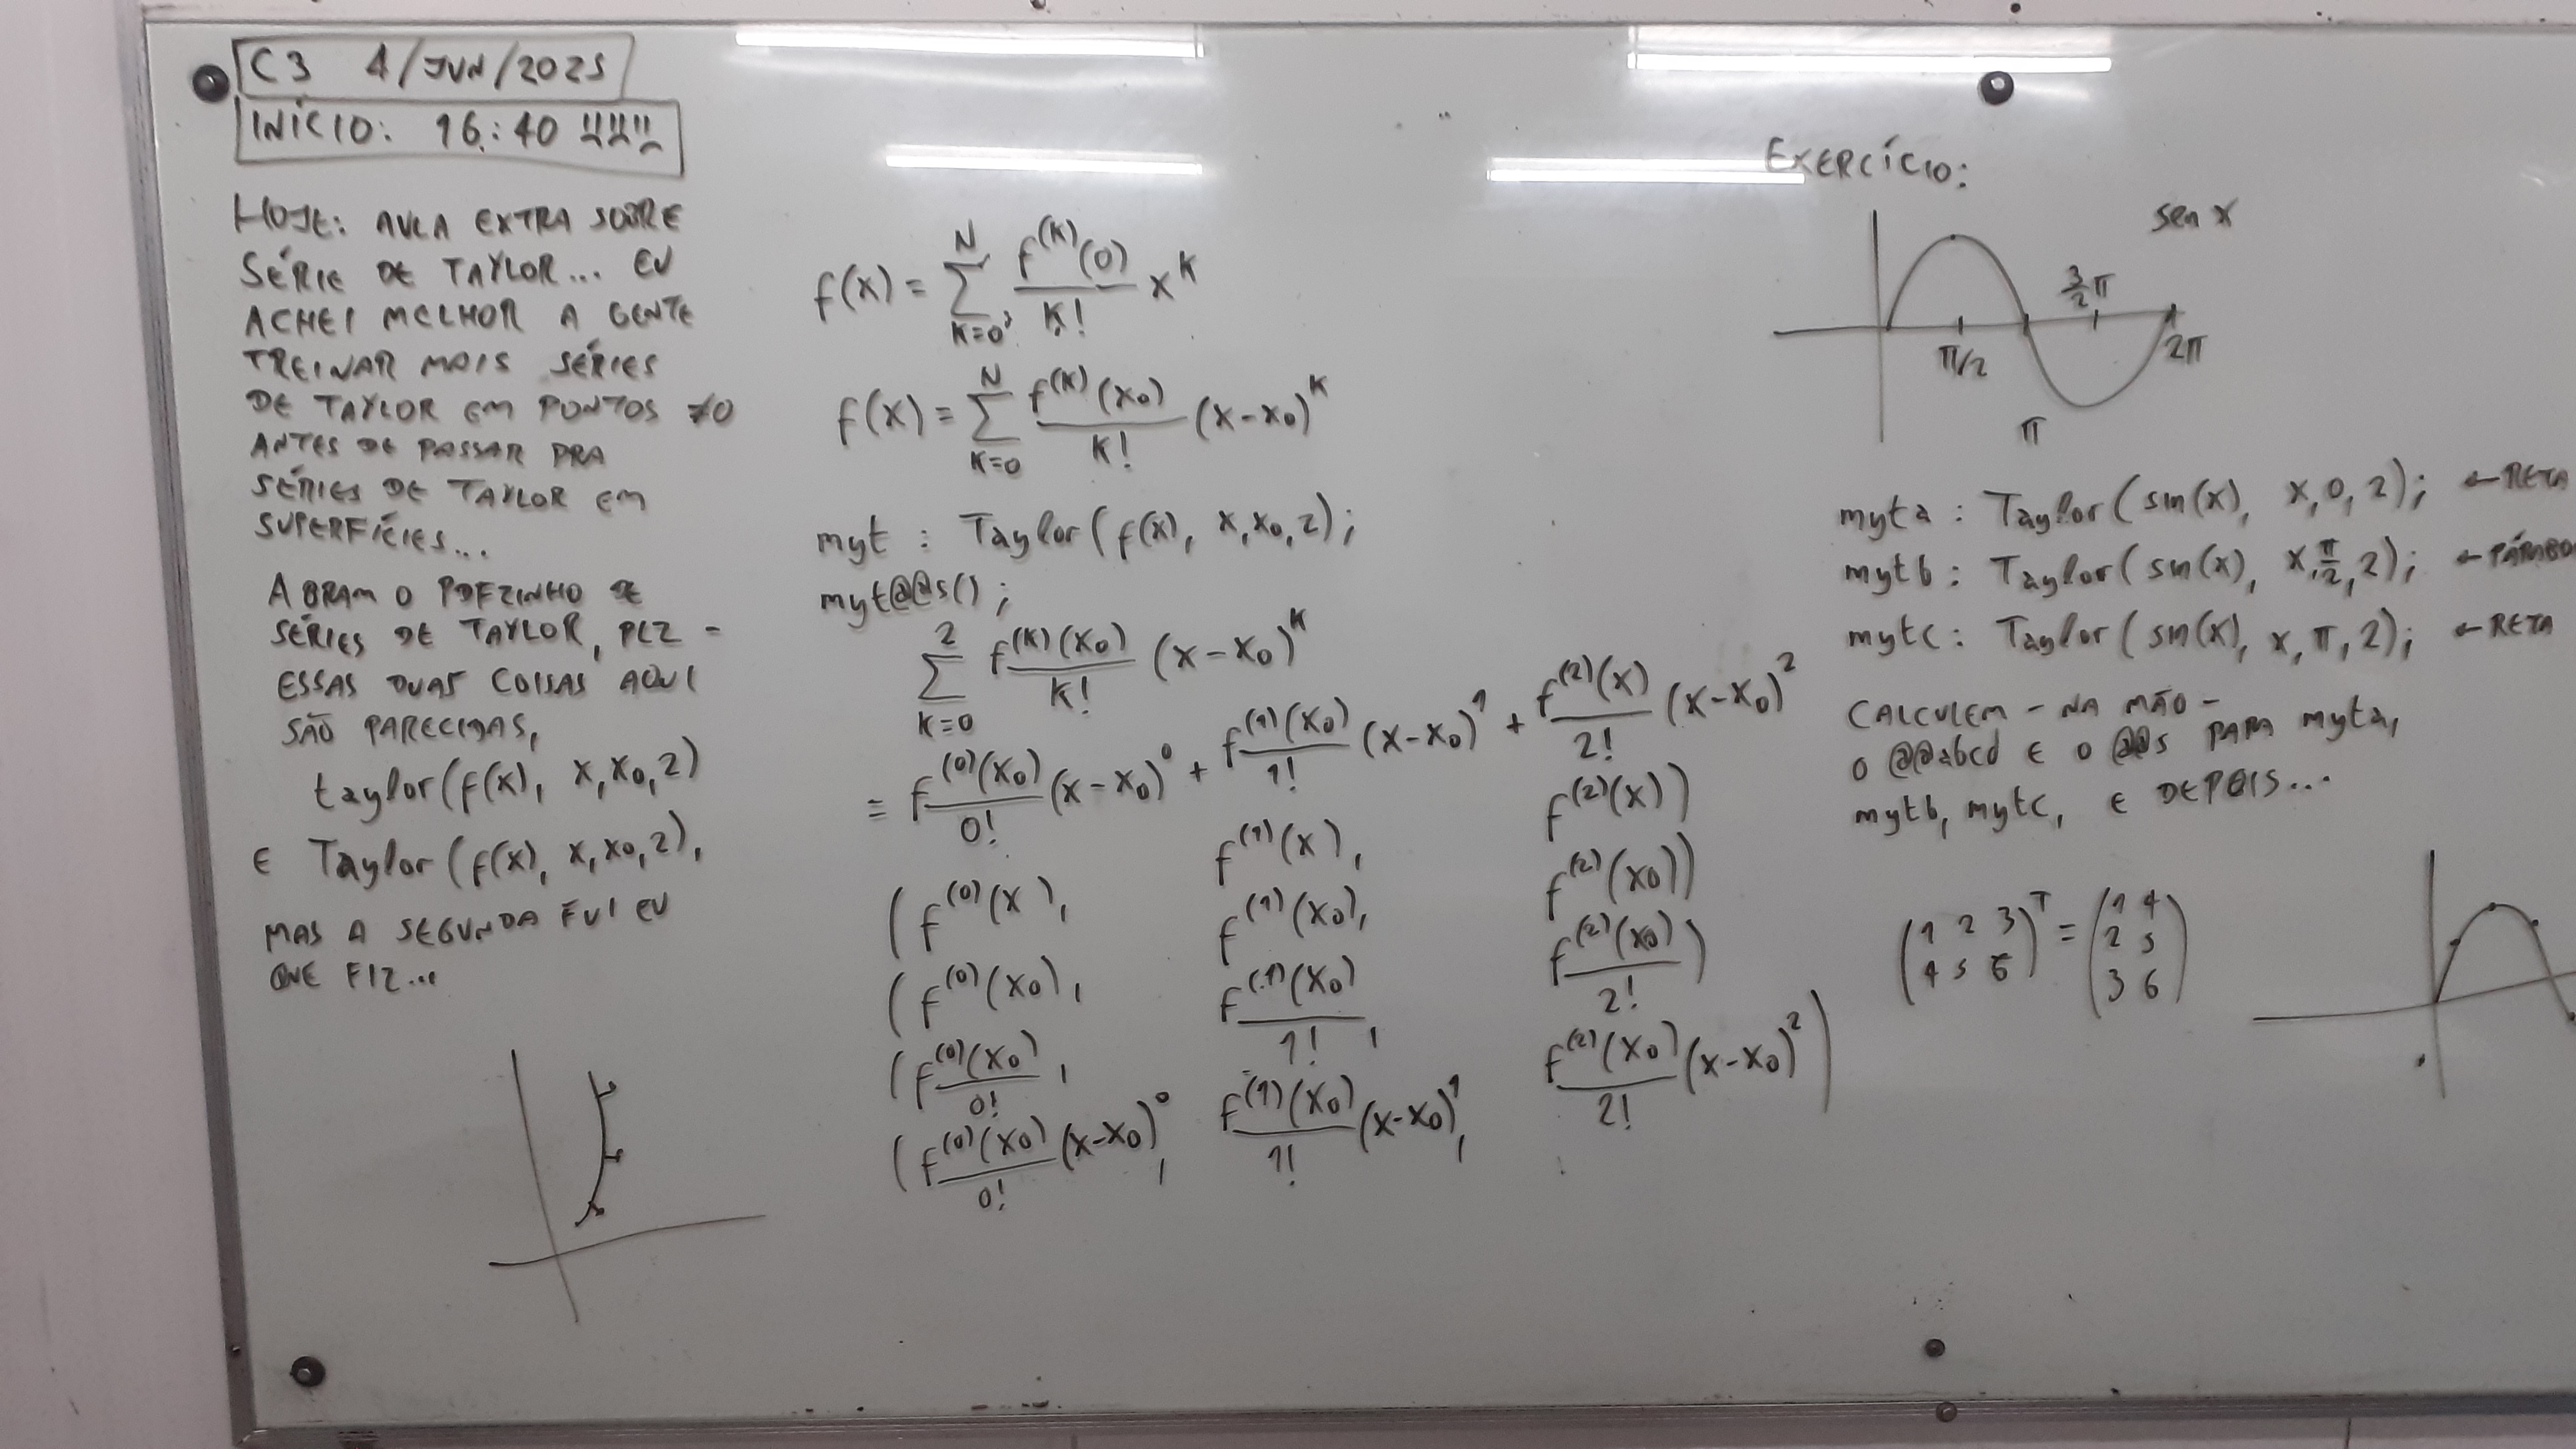 C3 4/JUN/2025
INÍCIO: 16:40
HOJE: AULA EXTRA SOBRE
SÉRIE DE TAYLOR... EU
ACHEI MELHOR A GENTE
TREINAR MAIS SÉRIES
DE TAYLOR EM PONTOS ≠0
ANTES DE PASSAR PRA
SÉRIES DE TAYLOR EM
SUPERFÍCIES...
ABRAM O PDFZINHO DE
SÉRIES DE TAYLOR, PLZ -
ESSAS DUAS COISAS AQUI
SÃO PARECIDAS,
taylor(f(x), x, x₀, 2)
E Taylor(f(x), x, x₀, 2),
MAS A SEGUNDA FUI EU
QUE FIZ...
f(x) = ∑_{k=0}^{N} f^{(k)}(0)/k! x^k
f(x) = ∑_{k=0}^{N} f^{(k)}(x₀)/k! (x-x₀)^k
myt : Taylor(f(x), x, x₀, 2);
myt@@s();
∑_{k=0}^{2} f^{(k)}(x₀)/k! (x-x₀)^k
= f^{(0)}(x₀)/0! (x-x₀)^0 + f^{(1)}(x₀)/1! (x-x₀)^1 + f^{(2)}(x)/2! (x-x₀)^2
(f^{(0)}(x), f^{(1)}(x), f^{(2)}(x))
(f^{(0)}(x₀), f^{(1)}(x₀), f^{(2)}(x₀))
(f^{(0)}(x₀)/0!, f^{(1)}(x₀)/1!, f^{(2)}(x₀)/2!)
(f^{(0)}(x₀)/0! (x-x₀)^0, f^{(1)}(x₀)/1! (x-x₀)^1, f^{(2)}(x₀)/2! (x-x₀)^2)
EXERCÍCIO:
sen x
π/2 π 3/2 π 2π
myta : Taylor(sin(x), x, 0, 2); ← RETA
mytb : Taylor(sin(x), x, π/2, 2); ← PÁRABO
mytc : Taylor(sin(x), x, π, 2); ← RETA
CALCULEM - NA MÃO -
O @@abcd E O @@s PARA myta,
mytb, mytc, E DEPOIS...
(1 2 3
4 5 6)^T = (1 4
2 5
3 6)